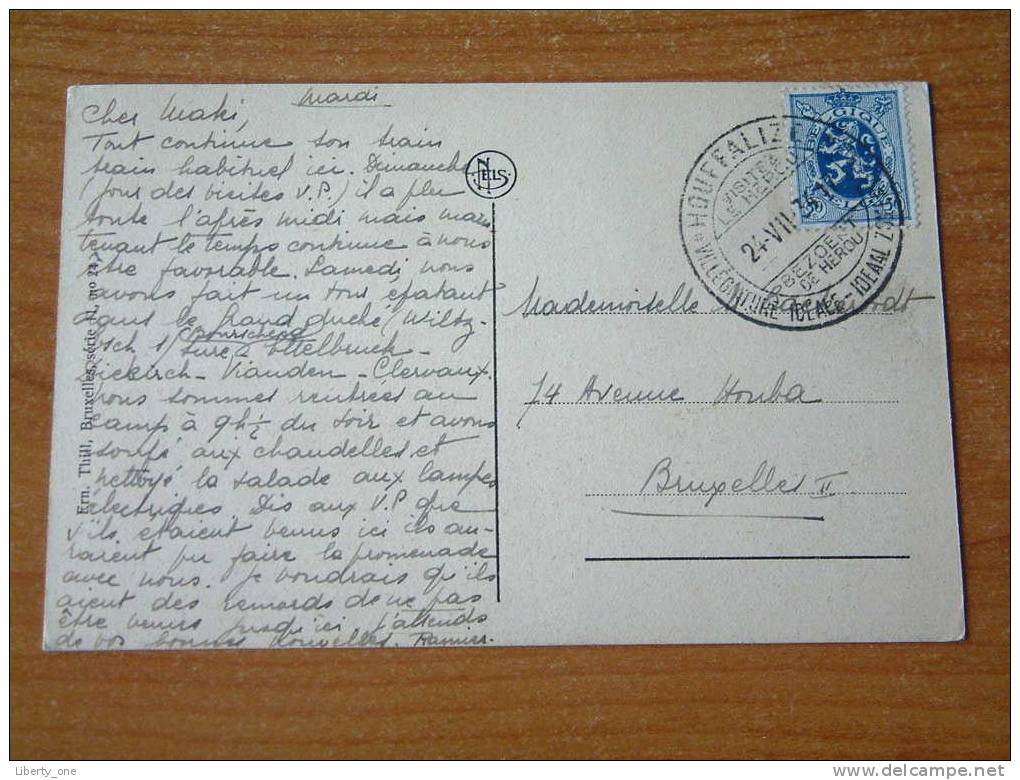 Mardi
Cher Maki,
Tout continue son train
train habituel ici. Dimanche
(jour des visites V.P.) il a plu
toute l'après midi mais main
tenant le temps continue à nous
être favorable. Samedi nous
avons fait un tour épatant
dans le grand duché (Wiltz-
Esch s/ Sure à Ettelbruck -
Bourscheid
Diekirch - Vianden - Clervaux.
Nous sommes rentrées au
camp à 9h½ du soir et avons
soupé aux chandelles et
nettoyé la salade aux lampes
électriques. Dis aux V.P. que
s'ils étaient venus ici ils au-
raient pu faire la promenade
avec nous. Je voudrais qu'ils
aient des remords de ne pas
être venus jusqu'ici j'attends
de vos bonnes nouvelles. Ramier.
Ern. Thill, Bruxelles, série 11, no 24
NELS
BELGIQUE
HOUFFALIZE
VISITEZ
LE HEROU
24-VII-34
BEZOEKT
DE HEROU
VILLEGIATURE IDEALE - IDEAAL
Mademoiselle
74 Avenue Houba
Bruxelles II
Liberty_one
delcampe.net